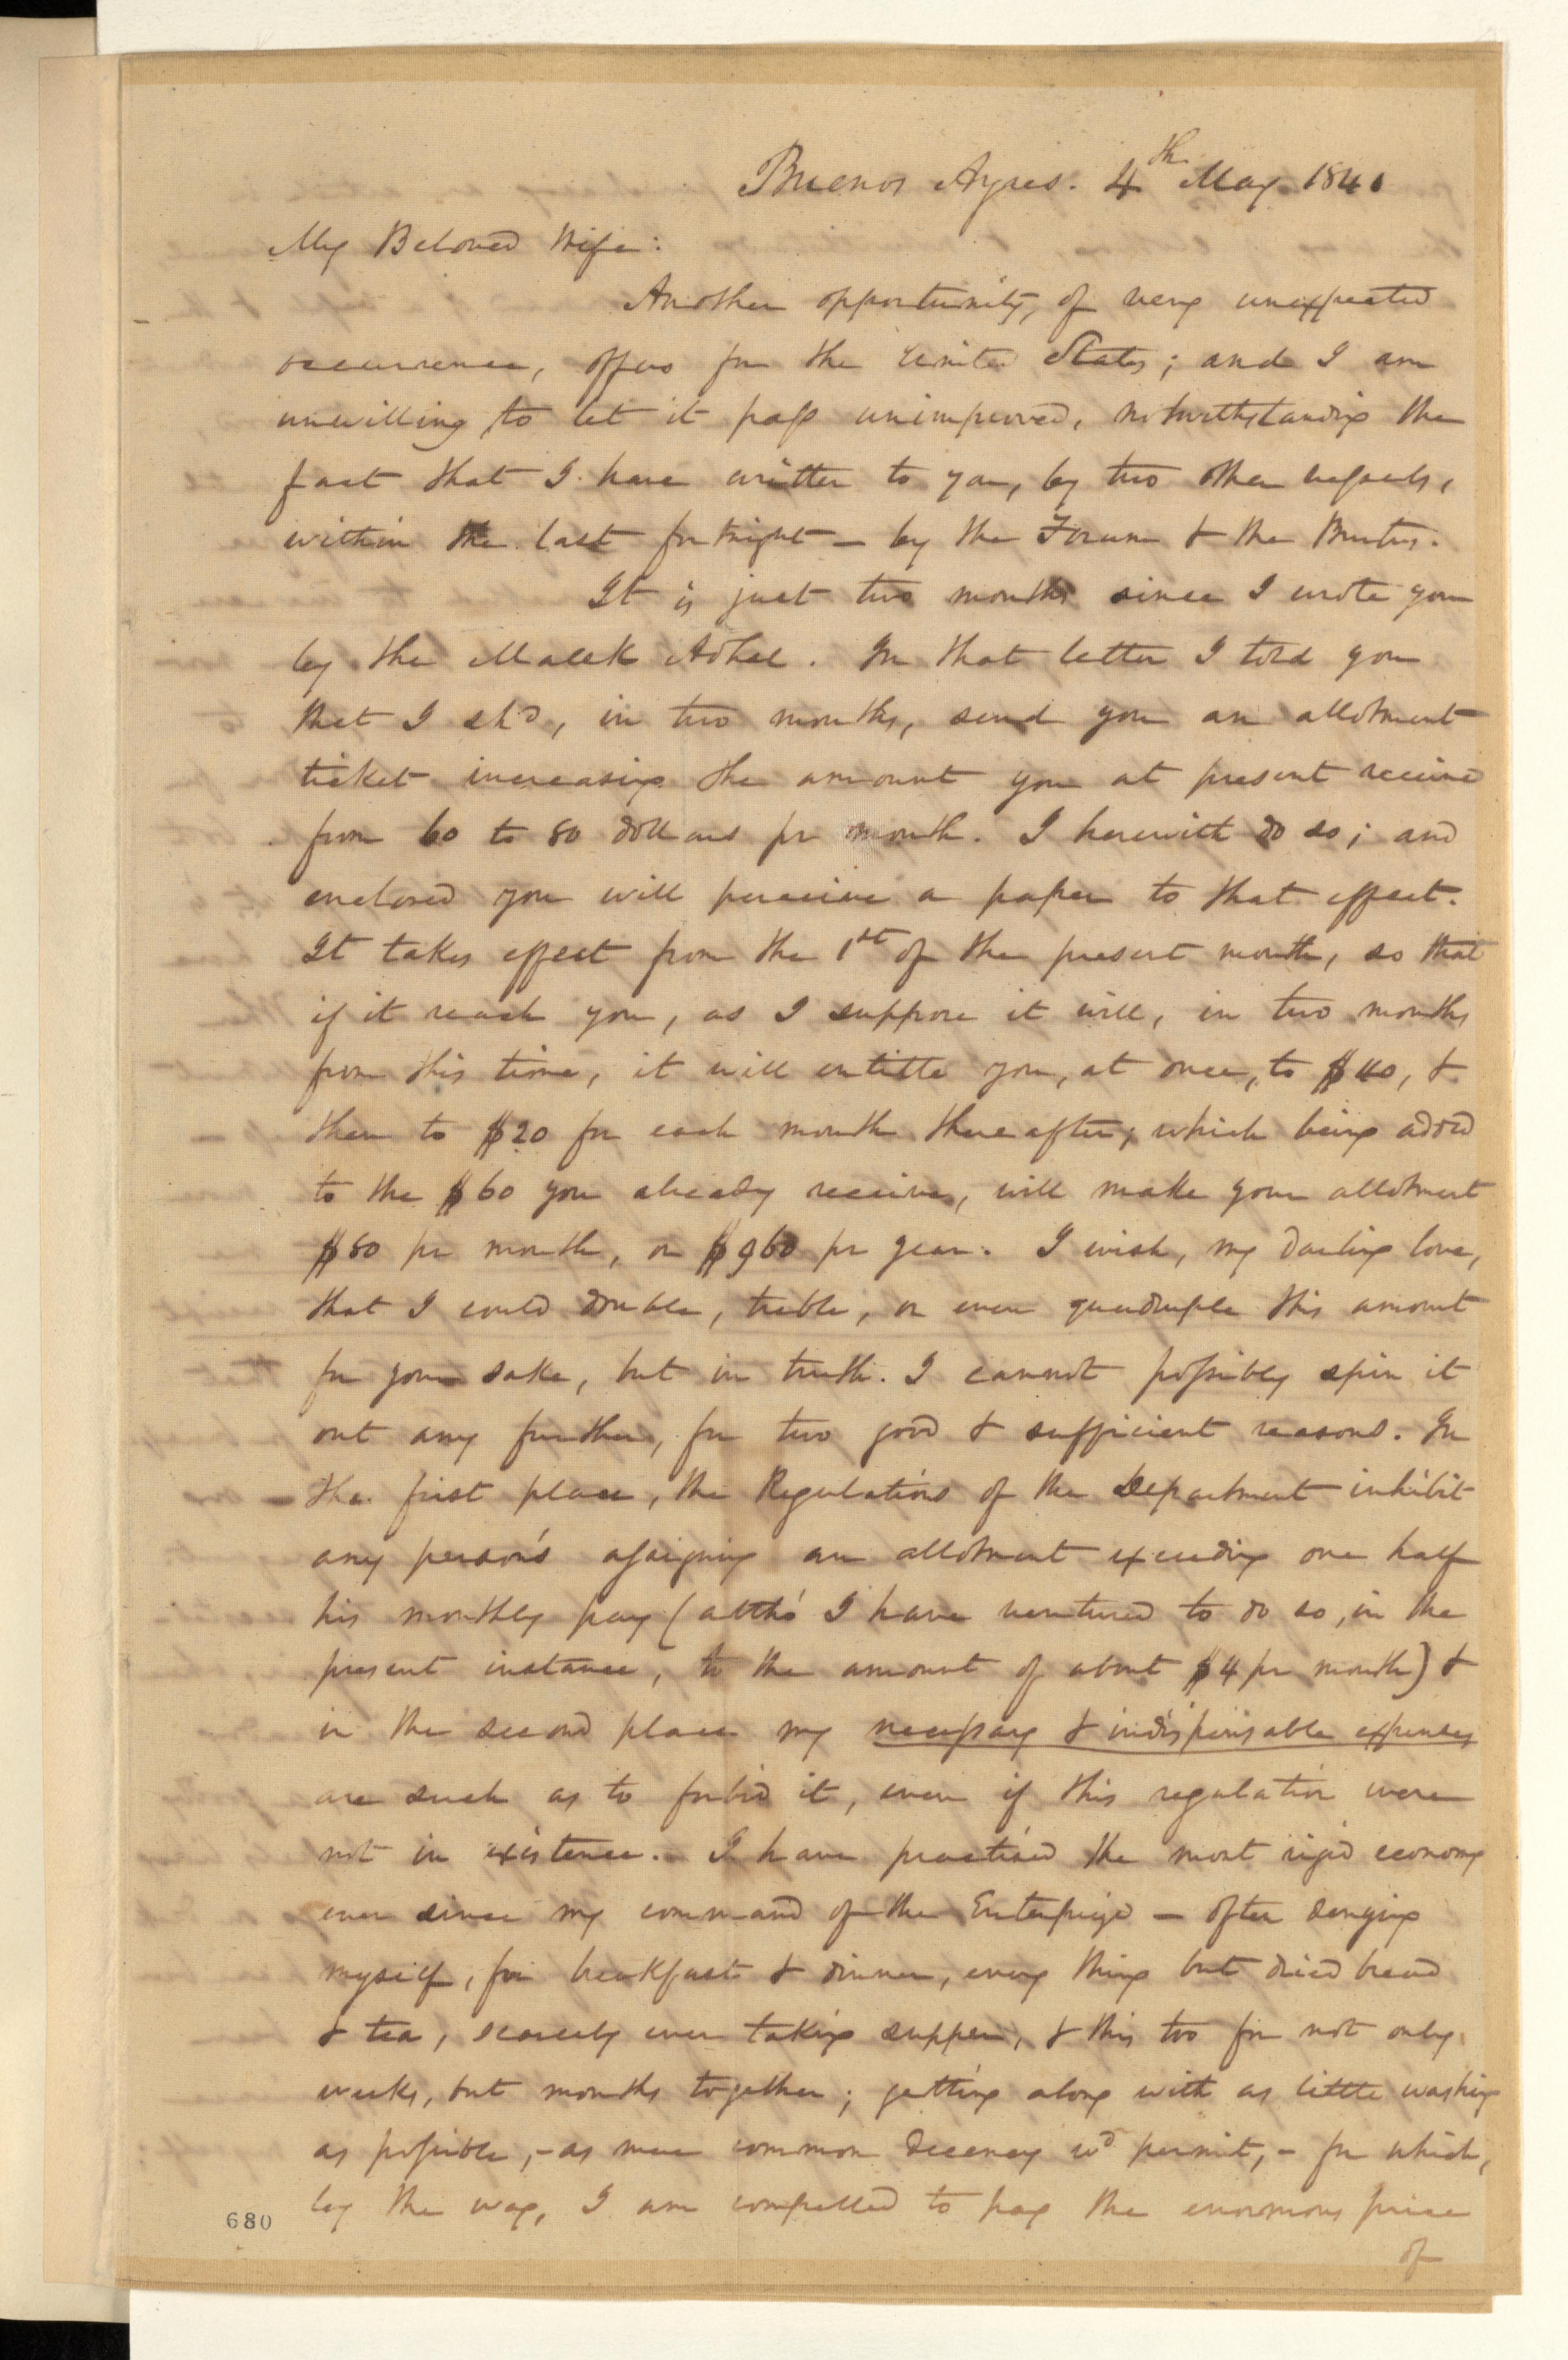 Buenos Ayres. 4th May 1841
My Beloved Wife:
Another opportunity, of very unexpected
occurrence, offers for the United States; and I am
unwilling to let it pass unimproved, notwithstanding the
fact that I have written to you, by two other vessels,
within the last fortnight — by the Forum & the Brutus.
It is just two months since I wrote you
by the Malek Adhel. In that letter I told you
that I shd, in two months, send you an allotment
ticket increasing the amount you at present receive
from 60 to 80 dollars pr month. I herewith do so; and
enclosed you will perceive a paper to that effect.
It takes effect from the 1st of the present month, so that
if it reach you, as I suppose it will, in two months
from this time, it will entitle you, at once, to $40, &
then to $20 for each month thereafter; which being added
to the $60 you already receive, will make your allotment
$80 pr month, or $960 pr year. I wish, my darling love,
that I could double, treble, or even quadruple this amount
for your sake, but in truth I cannot possibly spin it
out any further, for two good & sufficient reasons. In
the first place, the Regulations of the Department inhibit
any person's assigning an allotment exceeding one half
his monthly pay (altho' I have ventured to do so, in the
present instance, to the amount of about $4 pr month) &
in the second place my necessary & indispensable expenses
are such as to forbid it, even if this regulation were
not in existence. I have practised the most rigid economy
ever since my command of the Enterprize — often denying
myself, for breakfast & dinner, every thing but dried bread
& tea, scarcely ever taking supper, & this too for not only
weeks, but months together; getting along with as little washing
as possible, - as mere common decency wd permit, - for which,
by the way, I am compelled to pay the enormous price
of
680